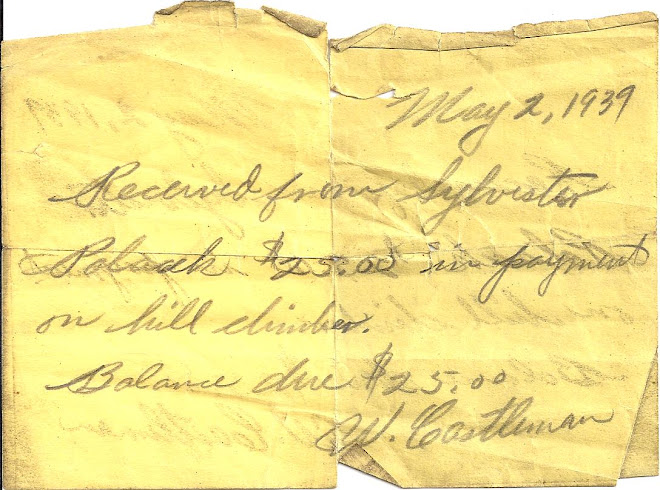 May 2, 1939
Received from Sylvester
Polacek $25.00 in payment
on hill climber.
Balance due $25.00
W. Castleman